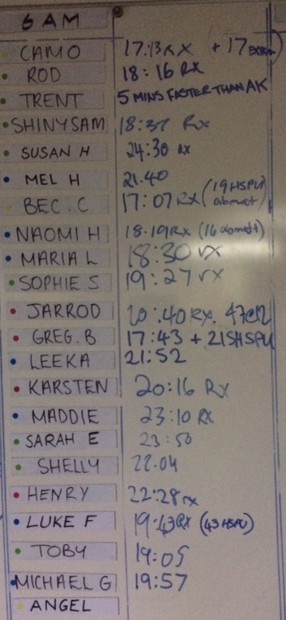 6 AM
CAMO 17:13 RX + 17
ROD 18:16 RX
TRENT 5 MINS FASTER THAN AK
SHINYSAM 18:37 RX
SUSAN H 24:30 RX
MEL H 21.40
BEC.C 17:07 RX (19 HSPU abmat)
NAOMI H 18.19 RX (16 abmat)
MARIA L 18:30 rx
SOPHIE S 19:27 rx
JARROD :40 RX.
GREG.B 17:43 + 21SHSPU
LEEKA 21:52
KARSTEN 20:16 RX
MADDIE 23:10 RX
SARAH E 23:50
SHELLY 22.04
HENRY 22:28 rx
LUKE F 19:43 RX (43 HSPU)
TOBY 19:05
MICHAEL G 19:57
ANGEL